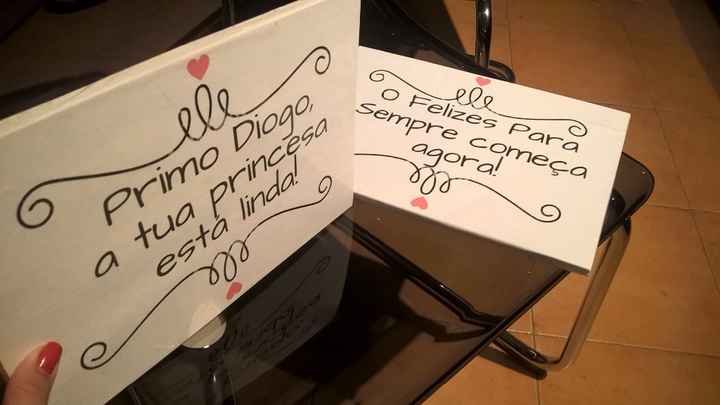 Primo Diogo,
a tua princesa
está linda!
O Felizes Para
Sempre começa
agora!